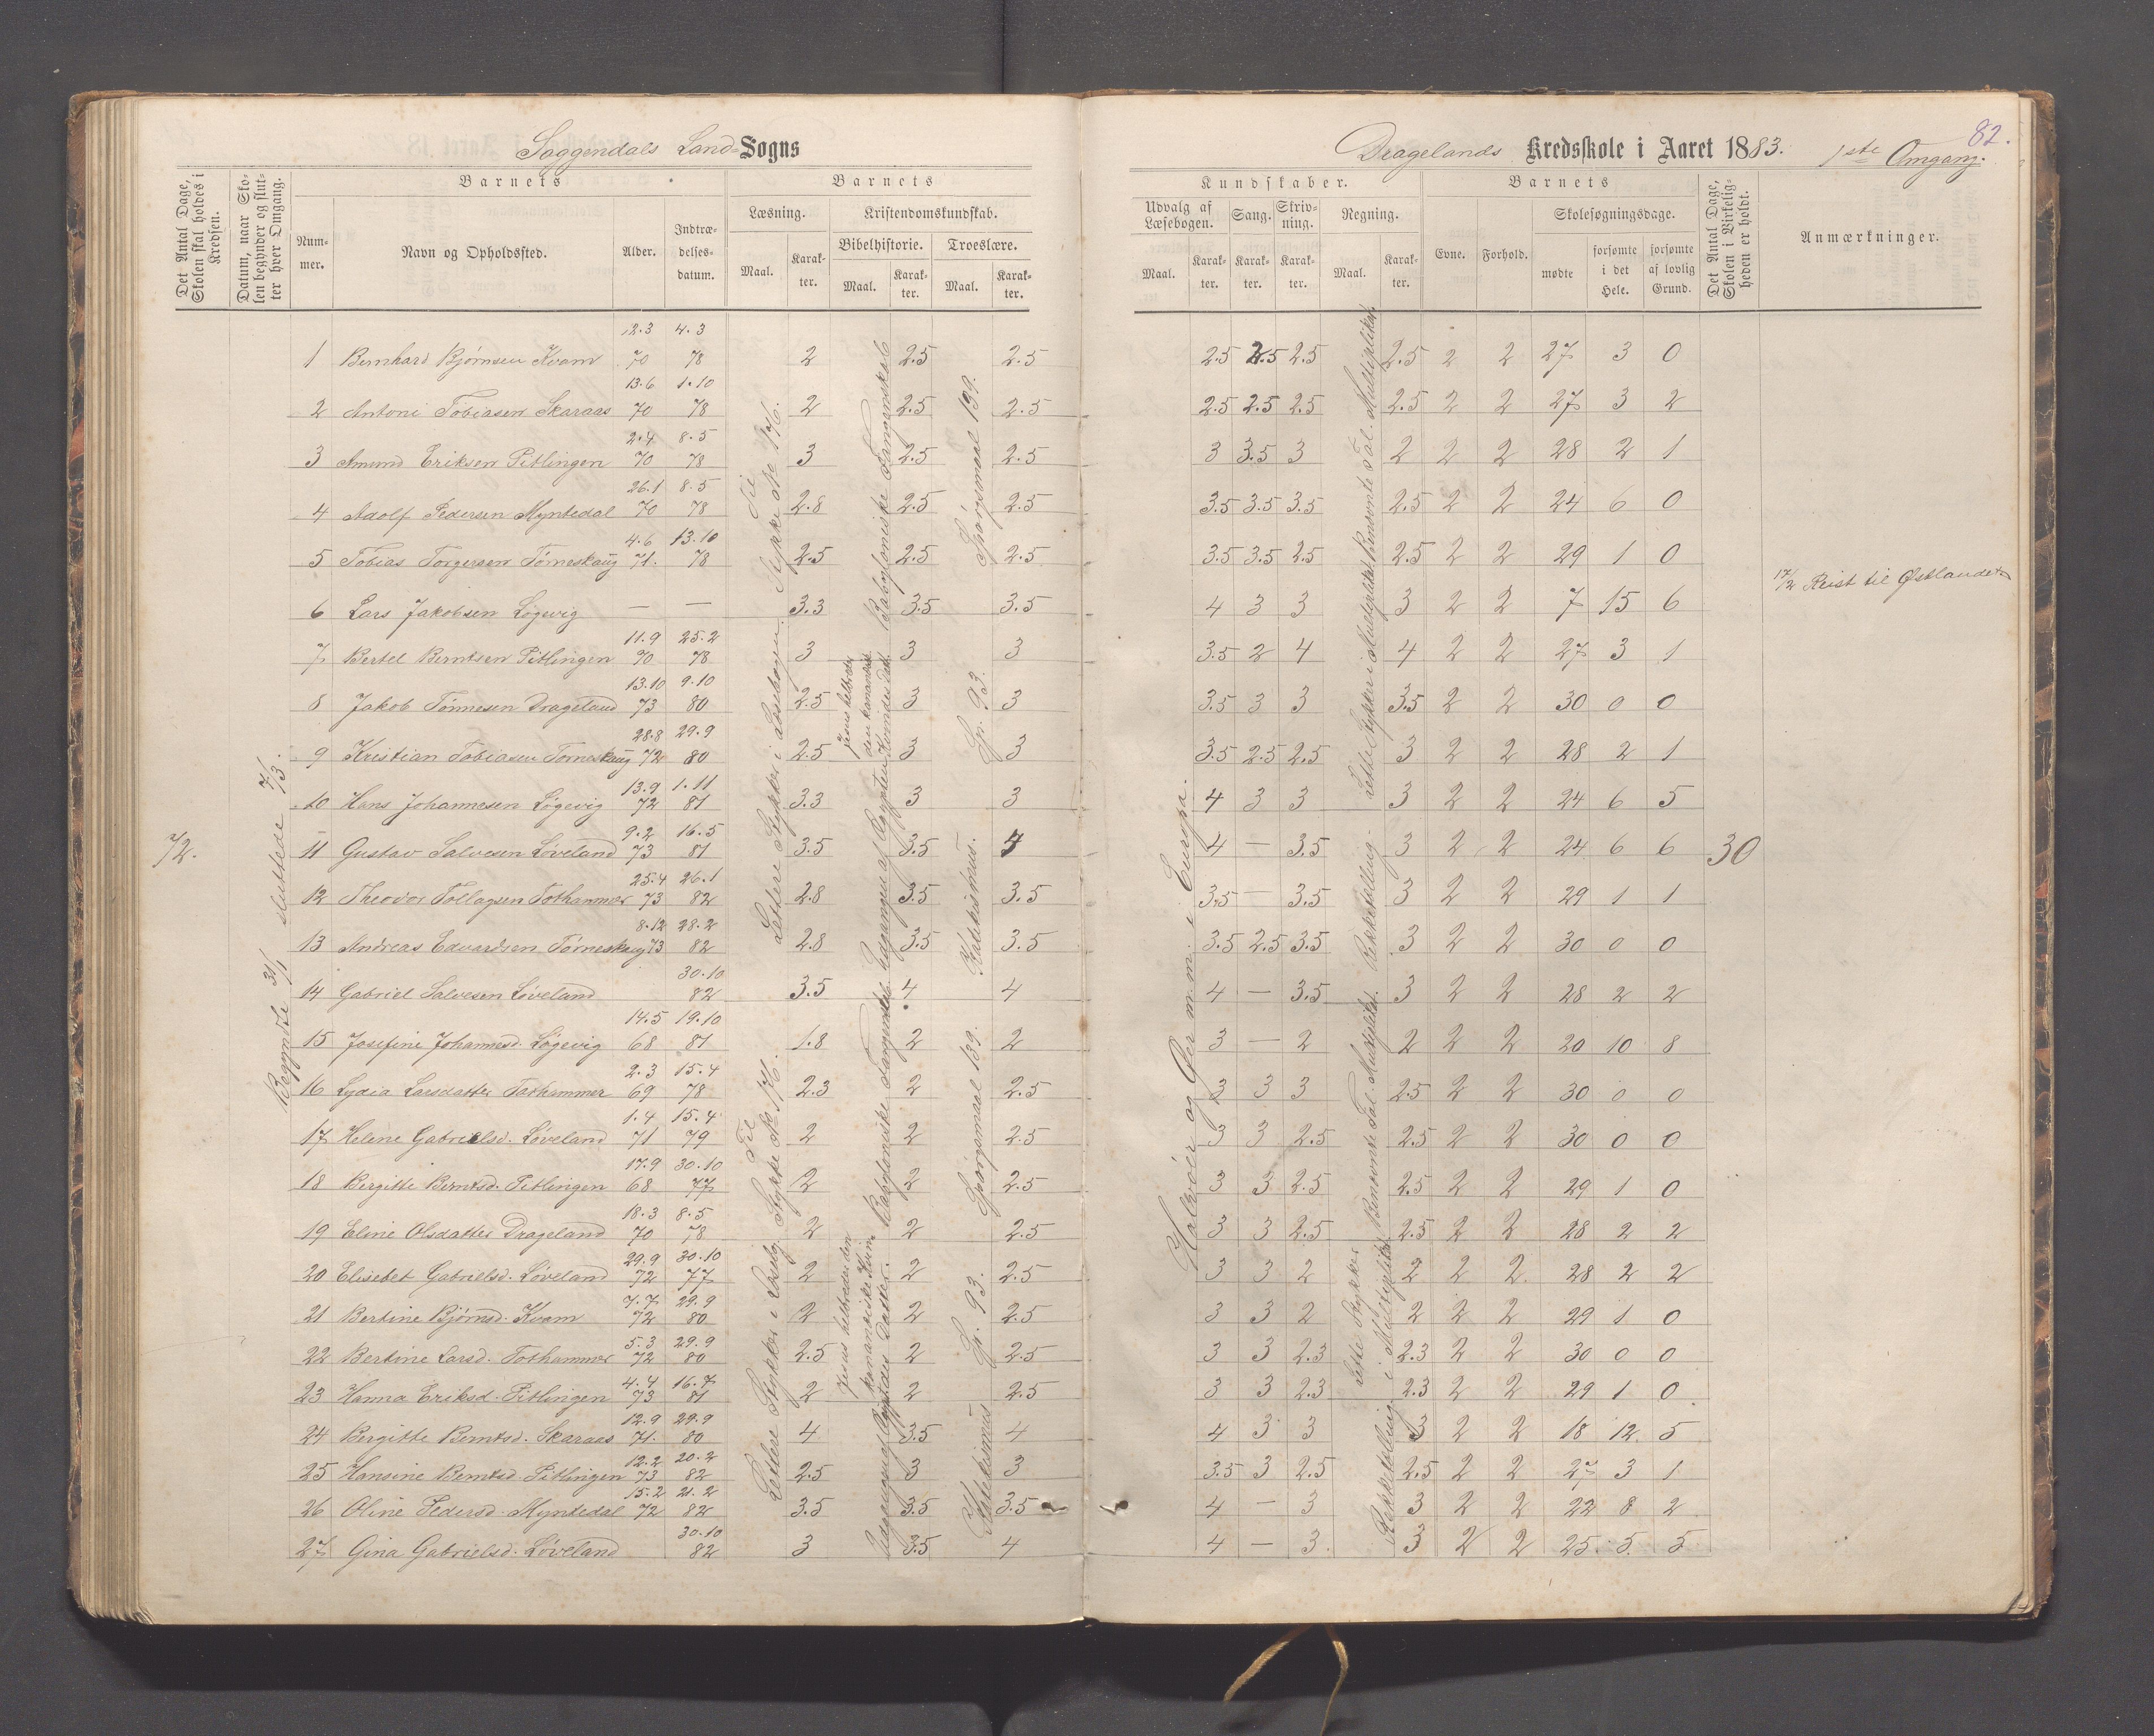 Soggendals Land=Sogns
Dragelands Kredsskole i Aaret 1883. 1ste Omgang.
82.
Det Antal Dage, Skolen skal holdes i Kredsen.
Datum, naar Skolen begynder og slutter hver Omgang.
Barnets
Barnets
Nummer.
Navn og Opholdssted.
Alder.
Indtrædelsesdatum.
Læsning.
Kristendomskundskab.
Bibelhistorie.
Troeslære.
Maal.
Karakter.
Maal.
Karakter.
Maal.
Karakter.
Kundskaber.
Barnets
Udvalg af Læsebogen.
Sang.
Skrivning.
Regning.
Evne.
Forhold.
Skolesøgningsdage.
Maal.
Karakter.
Karakter.
Karakter.
Maal.
Karakter.
mødte
forsømte i det Hele.
forsømte af lovlig Grund.
Det Antal Dage, Skolen i Virkeligheden er holdt.
Anmærkninger.
72.
Begyndte 31/1 sluttede 7/3.
30
1 Bernhard Bjørnsen Kvam 12.3 70 4.3 78 2 2.5 2.5 2.5 2.5 2.5 2.5 2 2 27 3 0
2 Antoni Tobiasen Skaraas 13.6 70 1.10 78 2 2.5 2.5 2.5 2.5 2.5 2.5 2 2 27 3 2
3 Amund Eriksen Pitlingen 2.4 70 8.5 78 3 2.5 2.5 3 3.5 3 2 2 2 28 2 1
4 Adolf Pedersen Myntedal 26.1 70 8.5 78 2.8 2.5 2.5 3.5 3.5 3.5 2.5 2 2 24 6 0
5 Tobias Torgersen Tørneskaug 4.6 71. 13.10 78 2.5 2.5 2.5 3.5 3.5 2.5 2.5 2 2 29 1 0
6 Lars Jakobsen Løgevig — — 3.3 3.5 3.5 4 3 3 3 2 2 7 15 6 17/2 Reist til Østlandet
7 Bertel Berntsen Pitlingen 11.9 70 25.2 78 3 3 3 3.5 2 4 4 2 2 27 3 1
8 Jakob Tønnesen Drageland 13.10 73 9.10 80 2.5 3 3 3.5 3 3 3.5 2 2 30 0 0
9 Kristian Tobiasen Tørneskaug 28.8 72 29.9 80 2.5 3 3 3.5 2.5 2.5 3 2 2 28 2 1
10 Hans Johannesen Løgevig 13.9 72 1.11 81 3.3 3 3 4 3 3 3 2 2 24 6 5
11 Gustav Salvesen Løveland 9.2 73 16.5 81 3.5 3.5 4 4 — 3.5 3 2 2 24 6 6
12 Theodor Tollagsen Tothammer 25.4 73 26.1 82 2.8 3.5 3.5 3.5 — 3.5 3 2 2 29 1 1
13 Andreas Edvardsen Tørneskaug 8.12 73 28.2 82 2.8 3.5 3.5 3.5 2.5 3.5 3 2 2 30 0 0
14 Gabriel Salvesen Løveland 30.10 82 3.5 4 4 4 — 3.5 3 2 2 28 2 2
15 Josefine Johannesd. Løgevig 14.5 68 19.10 81 1.8 2 2 3 — 2 2 2 2 20 10 8
16 Lydia Larsdatter Tothammer 2.3 69 15.4 78 2.3 2 2.5 3 3 3 2.5 2 2 30 0 0
17 Helene Gabrielsd. Løveland 1.4 71 15.4 79 2 2 2.5 3 3 2.5 2.5 2 2 30 0 0
18 Bergitte Berntsd. Pitlingen 17.9 68 30.10 77 2 2 2.5 3 3 2.5 2.5 2 2 29 1 0
19 Eline Olsdatter Drageland 18.3 70 8.5 78 2 2 2.5 3 3 2.5 2.5 2 2 28 2 2
20 Elisebet Gabrielsd. Løveland 29.9 72 30.10 77 2 2 2.5 3 3 2 2 2 2 28 2 2
21 Bertine Bjørnsd. Kvam 7.7 72 29.9 80 2 2 2.5 3 3 2 2 2 2 29 1 0
22 Bertine Larsd. Tothammer 5.3 72 29.9 80 2.5 2 2.5 3 3 2.3 2.3 2 2 30 0 0
23 Hanna Eriksd. Pitlingen 4.4 73 16.7 81 2 2 2.5 3 3 2.3 2.3 2 2 29 1 0
24 Bergitte Berntsd. Skaraas 12.9 71. 29.9 80 4 3.5 4 4 3 3 3 2 2 18 12 5
25 Hansine Berntsd. Pitlingen 12.2 73 20.2 82 2.5 3 3 3.5 3 2.5 2.5 2 2 27 3 1
26 Oline Pedersd. Myntedal 15.2 72 21.2 82 3.5 3.5 3.5 4 — 3 3 2 2 22 8 2
27 Gina Gabrielsd. Løveland 30.10 82 3 3.5 4 4 — 3 3 2 2 25 5 5
Lettere Stykker i Læsebogen. Til Stykke No 176.
Lettere Stykker i Læsebg. Til Stykke No 176.
Jesus helbreder den kananæiske Kvindes Datter.
Udgangen af Ægypten. Babyloniske Fangenskab
Jesus helbreder den kananæiske Kvindes Datter.
Udgangen af Ægypten. Babyloniske Fangenskab
Katekismus. Sp. 93. Spørgsmaal 139.
Katekismus Sp. 93. Spørgsmaal 139.
Halvøer og Øer m.m. i Europa.
Rækketælling. Lette Stykker i Multiplikat. Benævnte Tal. Multiplikat.
Rækketælling. Lette Stykker i Multiplikat. Benævnte Tal. Multiplikat.